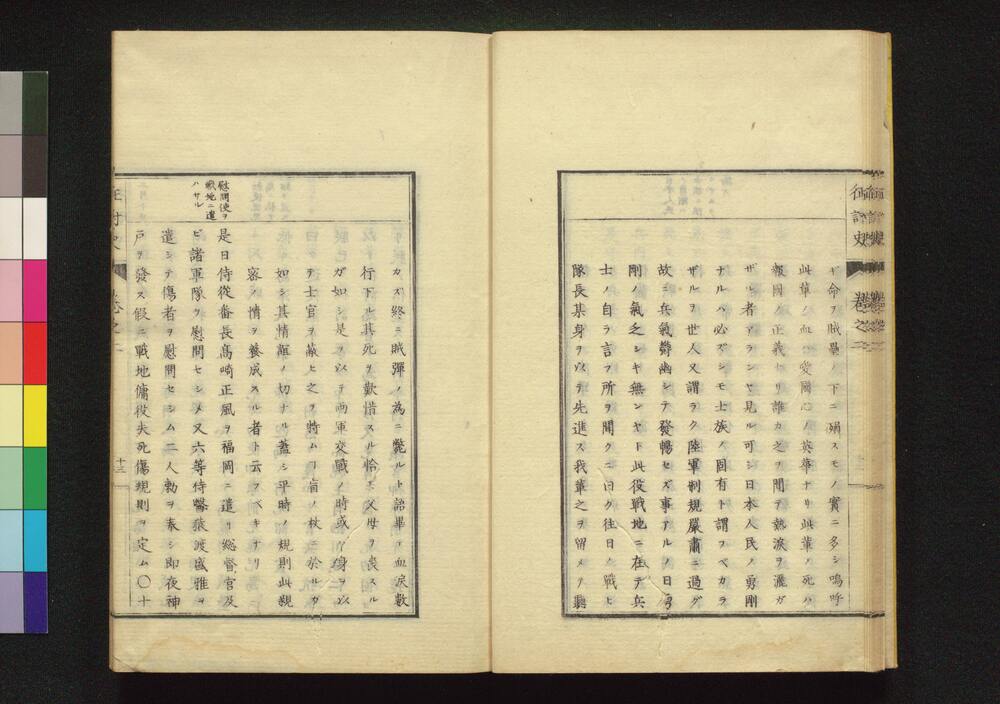 征討史 巻之二
ギ命ヲ賊壘ノ下ニ殞スモノ實ニ多シ嗚呼
此輩ノ血ハ愛國心ノ英華ナリ此輩ノ死ハ
報國ノ正義ナリ誰カ之ヲ聞テ熱淚ヲ灑ガ
ザル者アランヤ見ル可シ日本人民ノ勇剛
ナルハ必ズシモ士族ノ固有ト謂フベカラ
ザルヲ世人又謂ラク陸軍制規嚴肅ニ過グ
故ニ兵氣欝幽シテ發暢セズ事アルノ日
剛ノ氣乏シキ無ンヤト此役戰地ニ在テ兵
士ノ自ラ言フ所ヲ聞クニ曰ク往日ノ戰ヒ
隊長某身ヲ以テ先進ス我輩之ヲ留メテ聽
カズ終ニ賊彈ノ為ニ斃ルト語畢テ血淚數
行下ル其死ヲ歎惜スル恰モ父母ヲ喪スル
ガ如シ是ヲ以テ兩軍交戰ノ時或ハ身ヲ以
テ士官ヲ蔽ヒ之ヲ恃ムヿ盲ノ杖ニ於ルガ
如シ其情誼ノ切ナル蓋シ平時ノ規則此親
密ノ情ヲ養成スル者ト云フベキナリ
慰問使ヲ
戰地ニ遣
ハサル
是日侍從番長高崎正風ヲ福岡ニ遣リ總督官及
ビ諸軍隊ヲ慰問セシメ又六等侍醫猿渡盛雅ヲ
遣シテ傷者ヲ慰問セシム二人勅ヲ奉シ即夜神
戶ヲ發ス假ニ戰地傭役夫死傷規則ヲ定ム〇十
十三